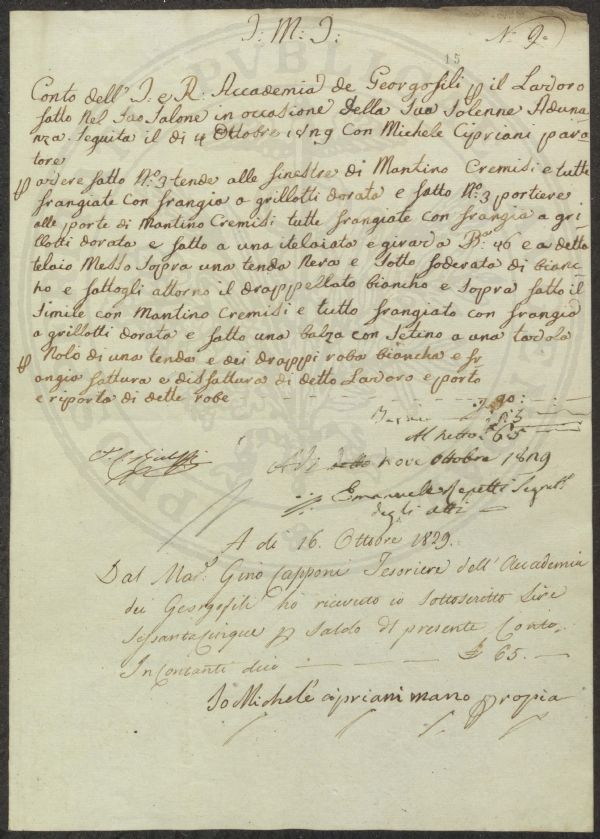 J: M: J:
N.º 9.
15
Conto dell' J: e R: Accademia de Georgofili p il Lavoro
fatto nel Suo Salone in occasione Della Sua Solenne Aduna
nza Seguita il di 4 Ottobre 1829 Con Michele Cipriani para
tore
p avere fatto Nº: 3 tende alle finestre di Mantino Cremisi e tutte
frangiate con frangia a grillotti dorata e fatto Nº: 3 portiere
alle porte di Mantino Cremisi tutte frangiate con frangia a gri
llotti dorata e fatto a una itelaiata e girava Bª: 46 e a detta
telaio Messo Sopra una tenda Nera e Sotto foderata di bianc
ho e fattogli attorno il drappellato biancho e Sopra fatto il
Simile con Mantino Cremisi e tutto frangiato con frangia
a grillotti dorata e fatto una balza con Setino a una tavola
p Nolo di una tenda e dei drappi roba biancha e fr
angia fattura e disfattura di detto Lavoro e porto
e riporto di dette robe
Al netto £ 65
A di detto nove Ottobre 1829
Emanuele Repetti Segret.º
degli atti
A di 16. Ottobre 1829.
Dal Mar.e Gino Capponi Tesoriere dell' Accademia
dei Georgofili ho ricevuto io Sottoscritto Lire
Sessantacinque p Saldo dl presente Conto,
In Contanti dico £ 65.
Io Michele Cipriani mano propia